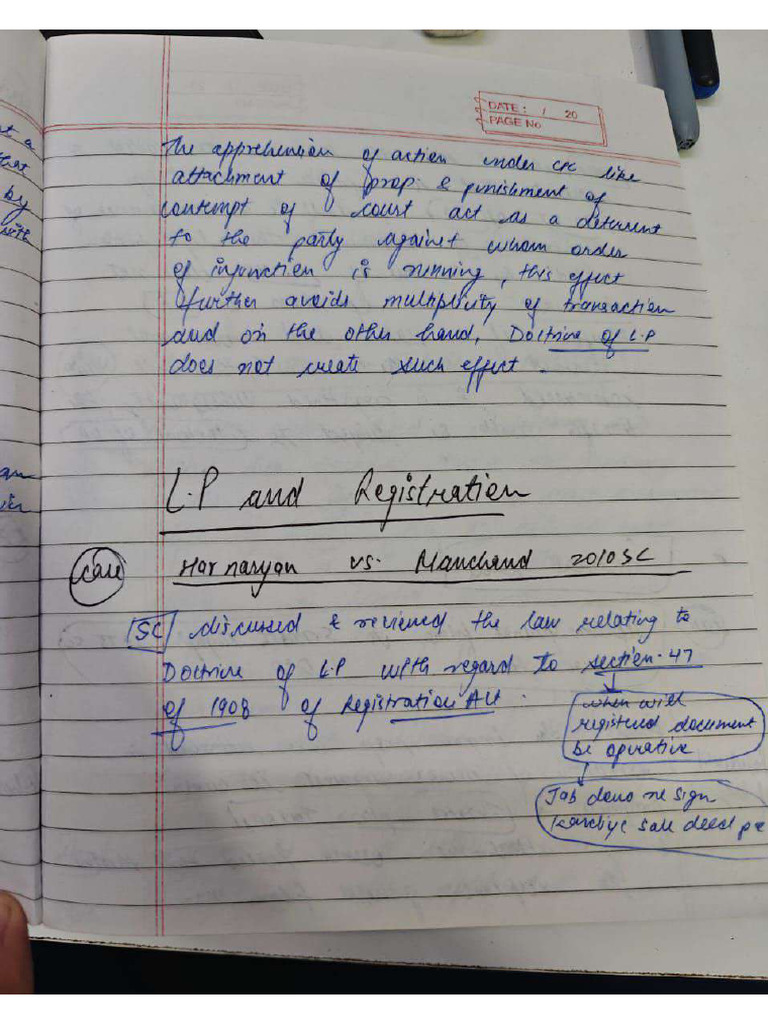 DATE: / 20
PAGE NO
The apprehension of action under CPC like
attachment of prop. & punishment of
contempt of court act as a deterrent
to the party against whom order
of injunction is running, this effect
further avoids multiplicity of transaction
and on the other hand, Doctrine of L.P
does not create such effect.
L.P and Registration
case Har naryan vs. Manchand 2010 SC
SC discussed & reviewed the law relating to
Doctrine of L.P with regard to section-47
of 1908 of Registration Act.
when will
registered document
be operative
Jab dono ne sign
karliye sale deed pe
t a
that
by
with